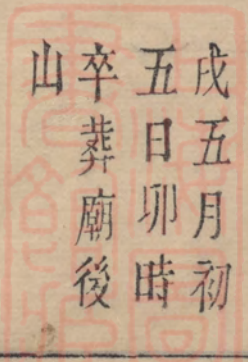 戌五月初
五日卯時
卒葬廟後
山